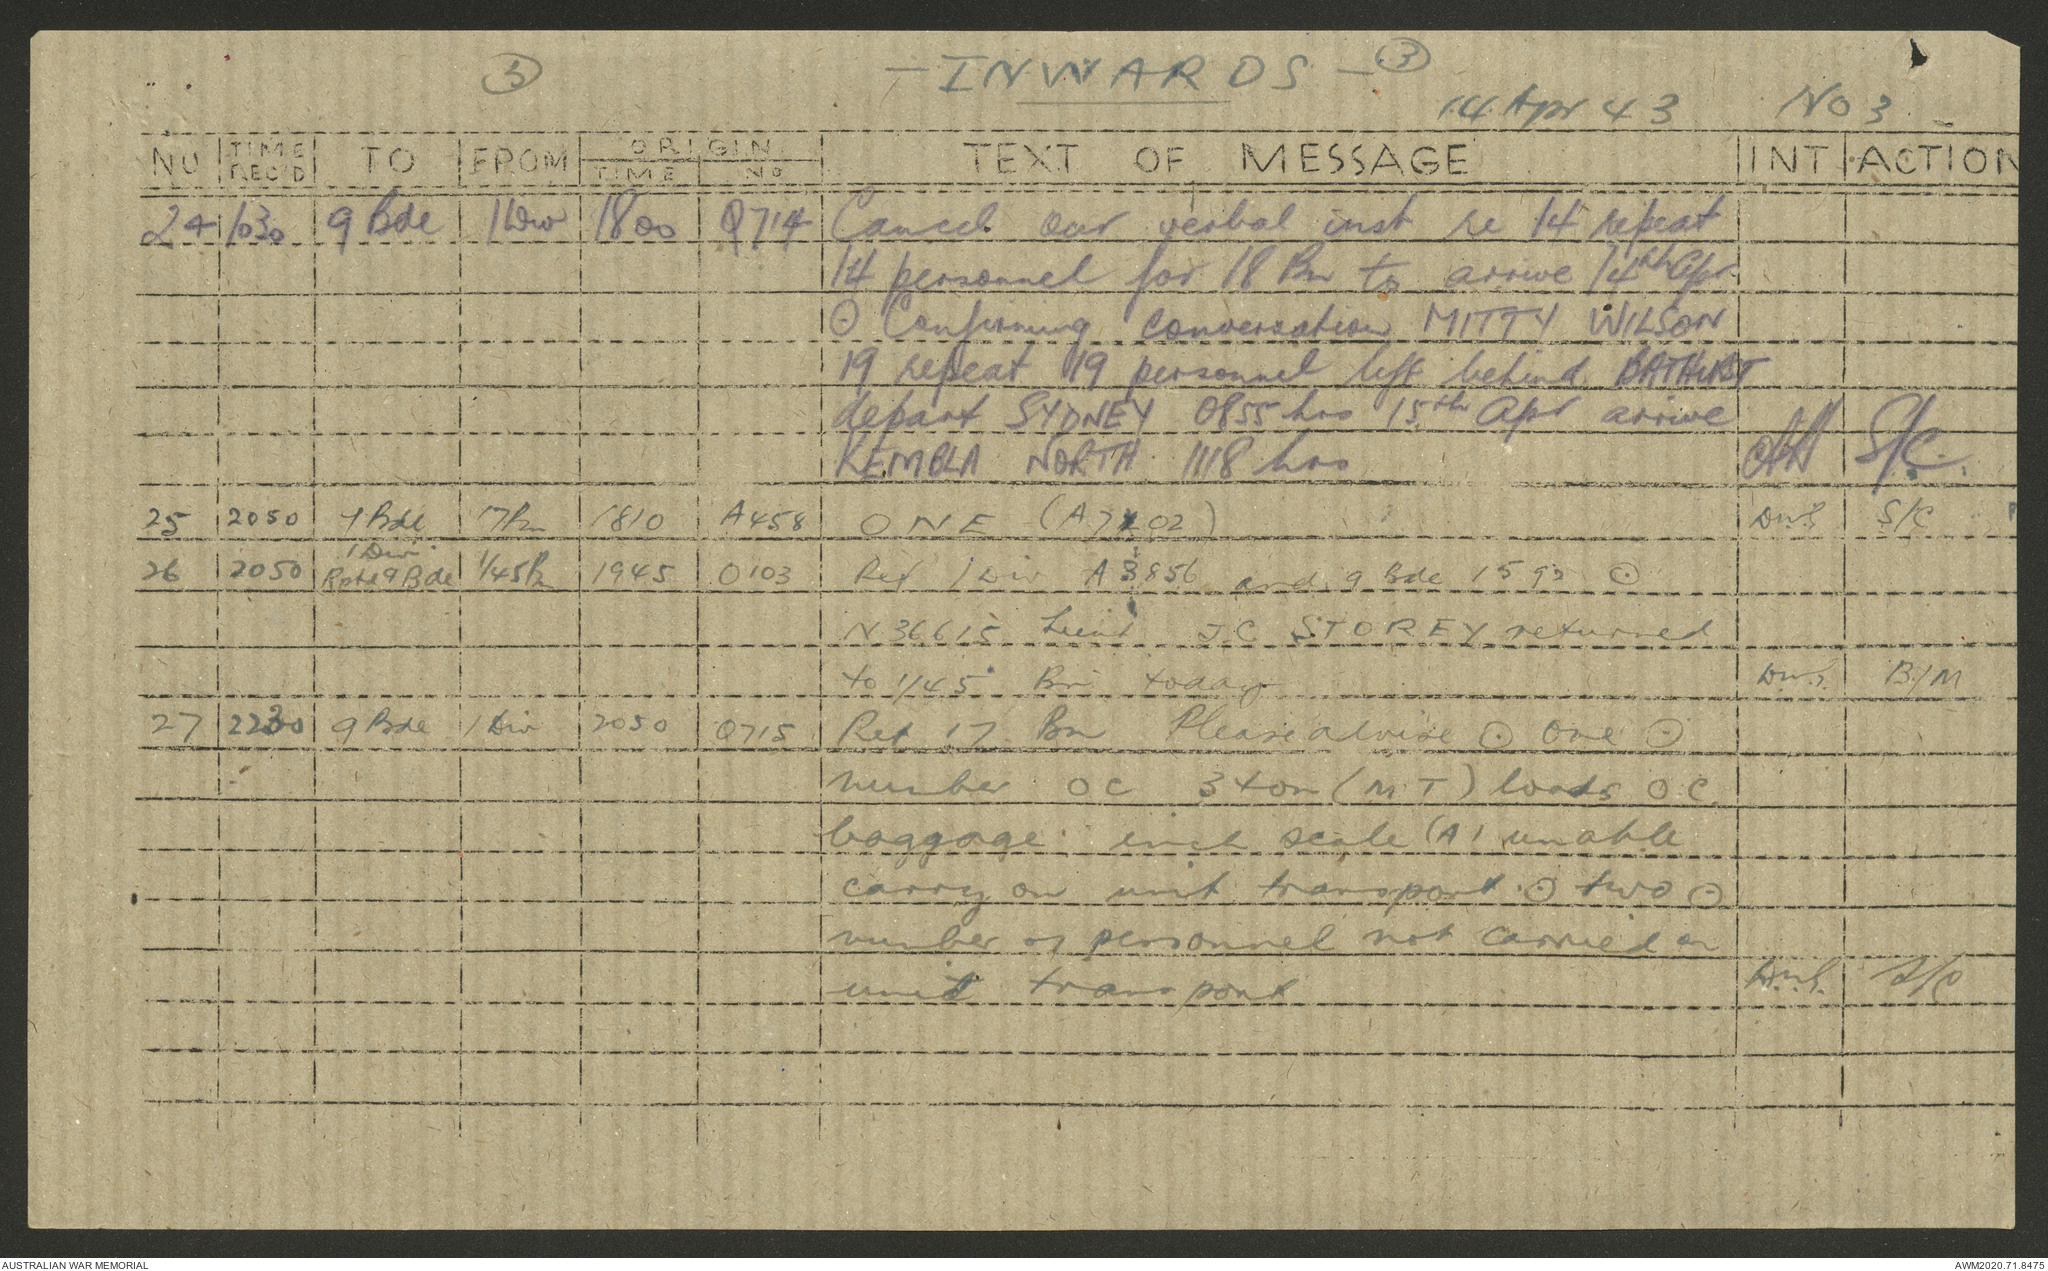 3
- INWARDS - 3
14 Apr 43 No 3
NU TIME REC'D TO FROM ORIGIN TIME NO TEXT OF MESSAGE INT ACTION
24 1030 9 Bde 1 Div 1800 Q714 Cancel our verbal inst re 14 repeat
14 personnel for 18 Bn to arrive 14th Apr.
⊙ Confirming conversation MITTY WILSON
19 repeat 19 personnel left behind BATHURST
depart SYDNEY 0855 hrs 15th Apr arrive
KEMBLA NORTH 1118 hrs S/C.
25 2050 9 Bde 17 Bn 1810 A458 ONE (A7202) DWS S/C
1 Div
26 2050 Rptd 9 Bde 1/45 Bn 1945 O103 Ref 1 Div A3856 and 9 Bde 1592 ⊙
N36615 Lieut J.C STOREY returned
to 1/45 Bn today DWS B/M
27 2230 9 Bde 1 Div 2050 Q715 Ref 17 Bn Please advise ⊙ One ⊙
number OC 3 ton (MT) loads OC
baggage incl scale (A) unable
carry on unit transport ⊙ two ⊙
number of personnel not carried on
unit transport DWS S/C
AUSTRALIAN WAR MEMORIAL AWM2020.71.8475